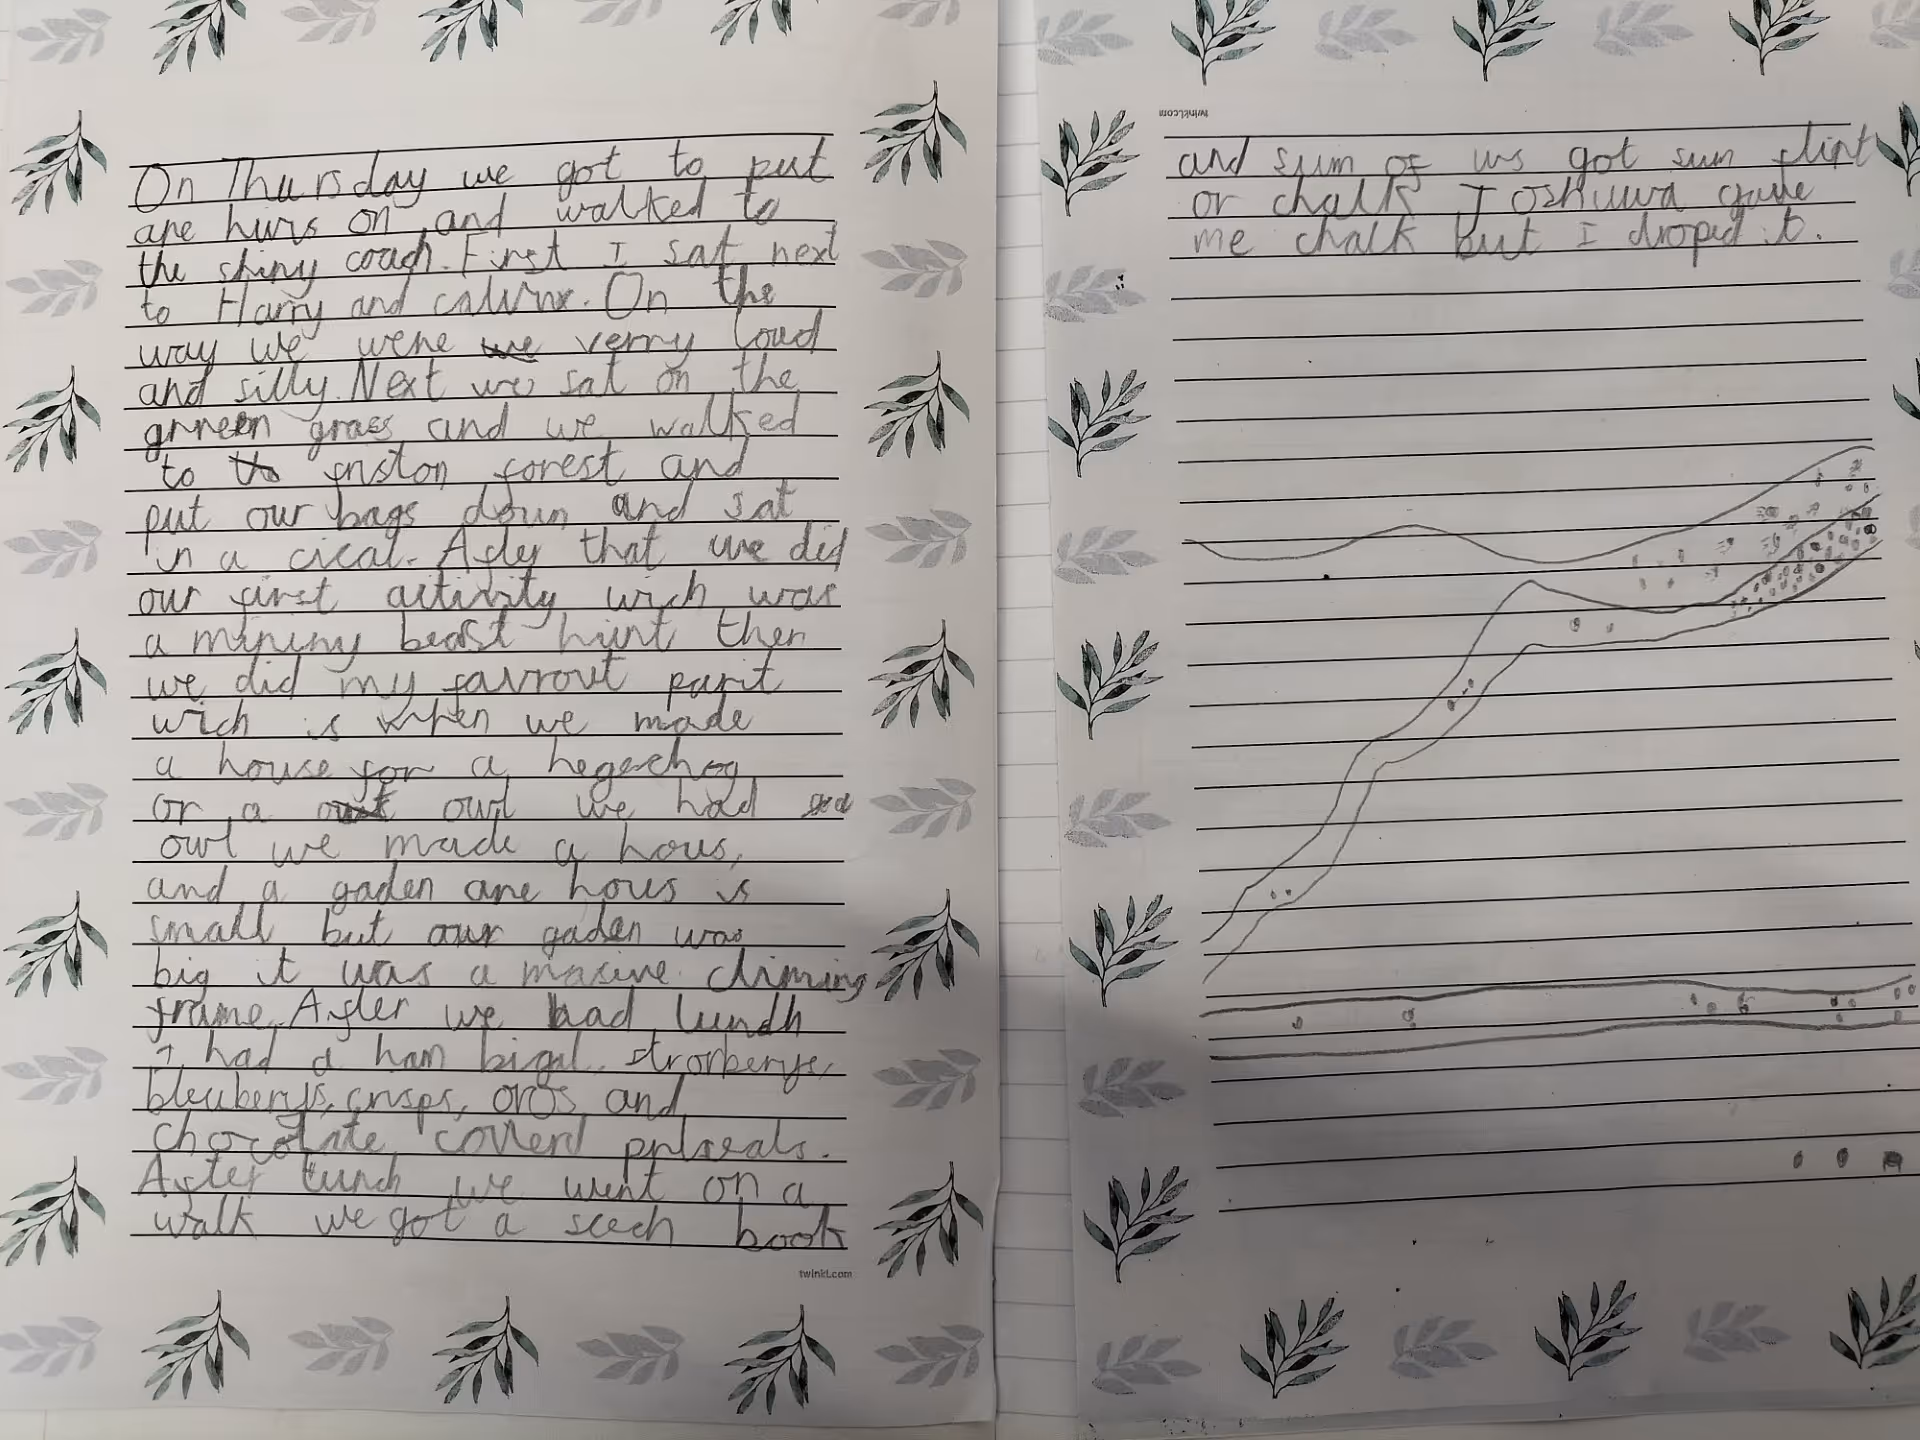 On Thursday we got to put
are huvis on and walked to
the shiny coach. First I sat next
to Harry and calvinx. On the
way we were we verry loud
and silly. Next we sat on the
green grass and we walked
to friston forest and
put our bags down and sat
in a cical. After that we did
our first actitivity wich was
a mininy beast hunt then
we did my favrout part
wich is when we made
a house for a hegechog
or a owl we had
owl we made a hous,
and a gaden are hous is
small but our gaden was
big it was a masive climing
frame. After we had lundh
I had a ham bigal. strorberys,
bleuberys, crisps, oros and
chocolate coverd
After lunch we went on a
walk we got a scech book
twinkl.com
twinkl.com
and sum of us got sum flint
or chalk Joshuwa gave
me chalk but I droped it.